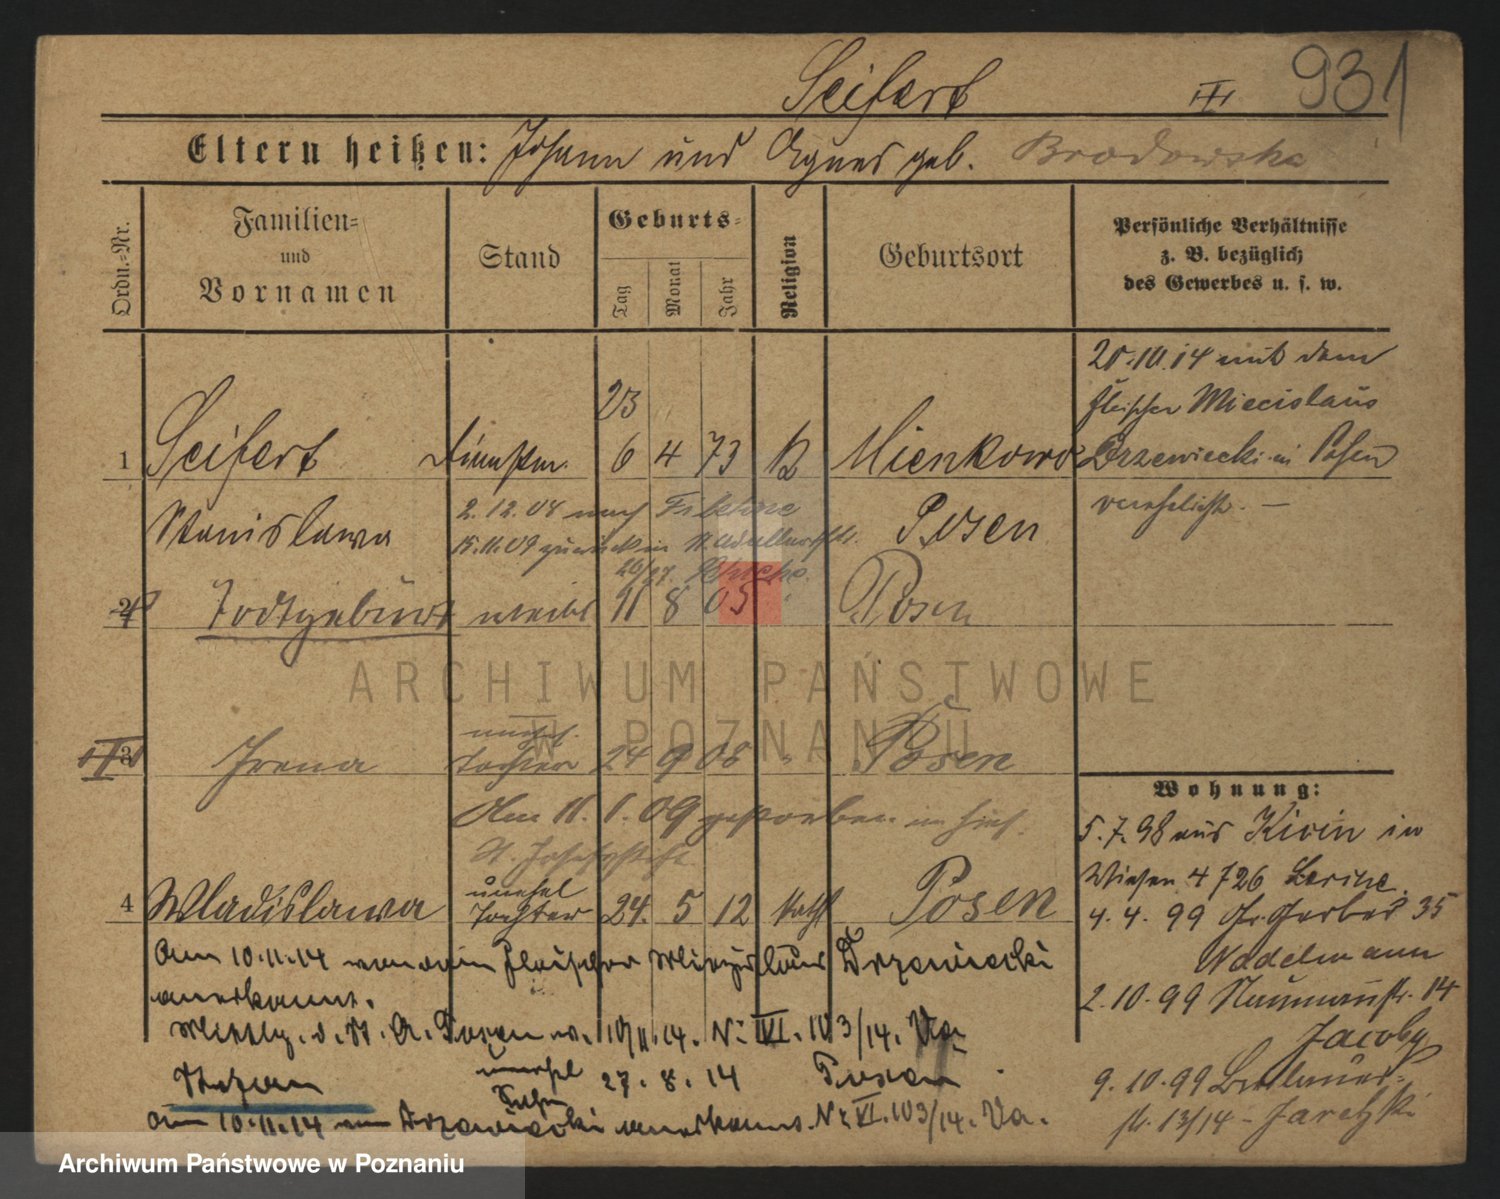 Seifert III 931
Eltern heißen: Johann und Agnes geb. Brodowska
Ordn.-Nr.
Familien-
und
Vornamen
Stand
Geburts-
Tag
Monat
Jahr
Religion
Geburtsort
Persönliche Verhältnisse
z. B. bezüglich
des Gewerbes u. s. w.
10.14 mit dem
Fleischer Miecislaus
23
1 Seifert 6 4 73 k Mienkowo Drzewiecki in Posen
verehelicht. —
Stanislawa 2.12.08 nach Filehne Posen
15.11.09 zurück in
26/27.
2 Todtgeburt weibl 11 8 05 Posen
ARCHIWUM PAŃSTWOWE
W POZNANIU
unehel.
3 Irena Tochter 24 9 08 " Posen
Wohnung:
Am 11. 1. 09 gestorben im hies.
St. Josefstift
5.7.98 aus in
unehel
4 Wladislawa Tochter 24. 5 12 kath Posen
Wiesen 4 726
4.4.99 Gr. Gerber 35
Nadelmann
Am 10.11.14 von dem Fleischer Drzewiecki
anerkannt.
2.10.99 Naumannstr. 14
Jacoby
Mittlg. d. St. A. Posen v. 10/11.14. Nr VI. 103/14. Va.
Stefan unehel 27. 8. 14 Posen
Sohn
9.10.99 Breslauer-
str. 13/14 - Jaretzki
Am 10.11.14 von Drzewiecki anerkannt. Nr VI. 103/14. Va.
Archiwum Państwowe w Poznaniu